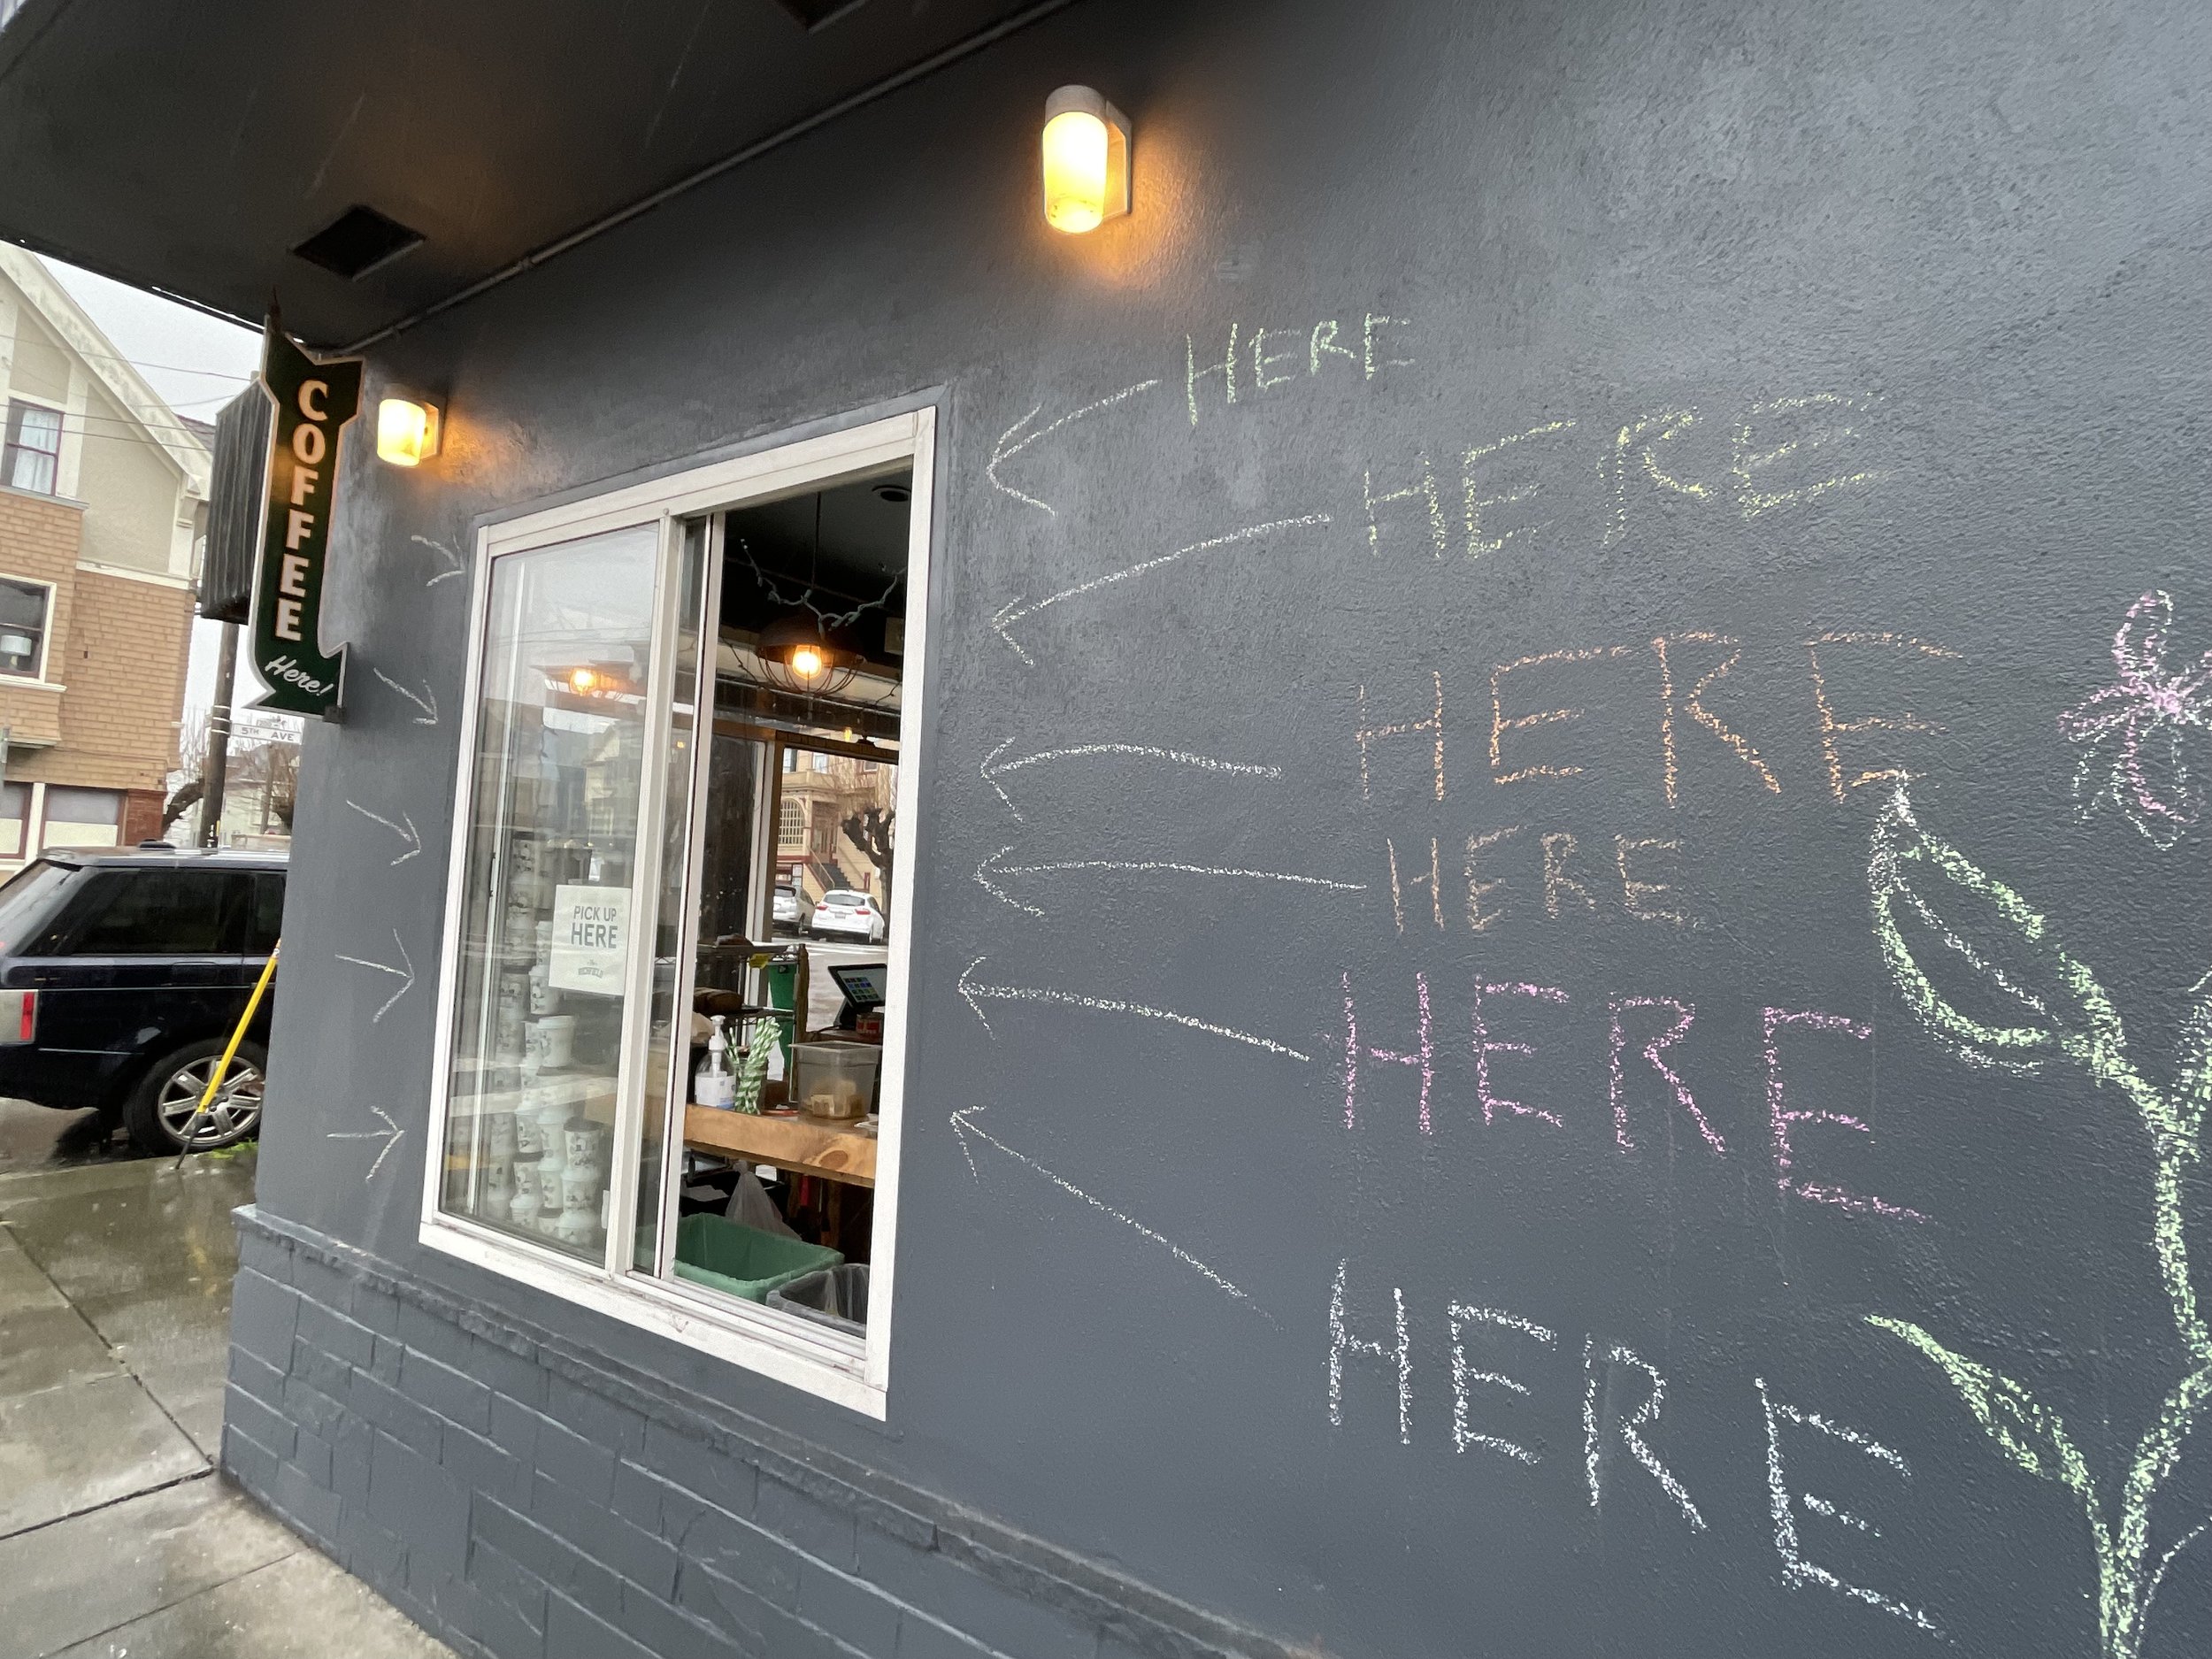 COFFEE
Here!
5TH AVE
PICK UP
HERE
HERE
HERE
HERE
HERE
HERE
HERE